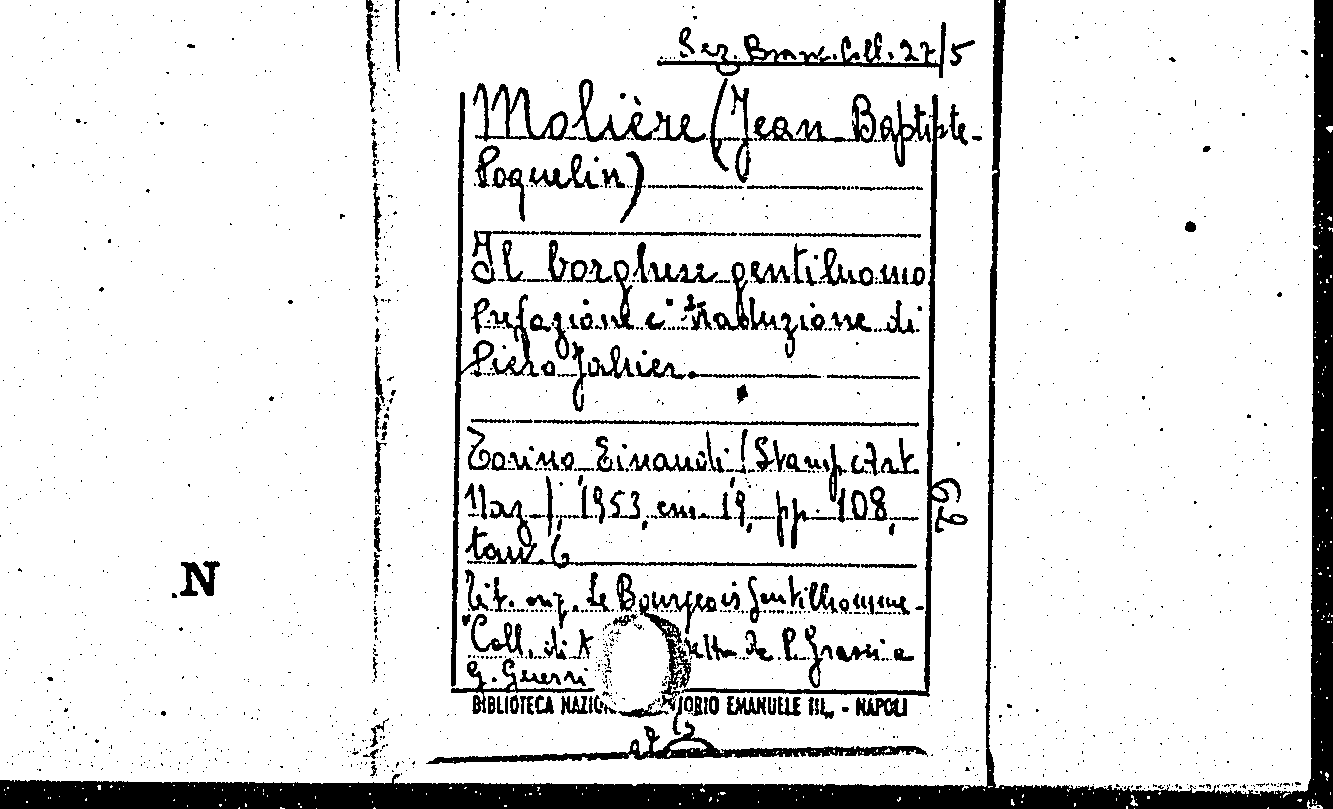 Sez. Branc. Coll. 27/5
Molière (Jean-Baptiste-
Poquelin)
Il borghese gentiluomo
Prefazione e traduzione di
Piero Jahier.
Torino, Einaudi (Stamp. Art.
Naz.), 1953, cm. 19, pp. 108,
tav. 6
Tit. orig. Le Bourgeois Gentilhomme-
"Coll. di diretta da P. Grassi e
G. Guerri
BIBLIOTECA NAZIO ORIO EMANUELE III. - NAPOLI
N
69